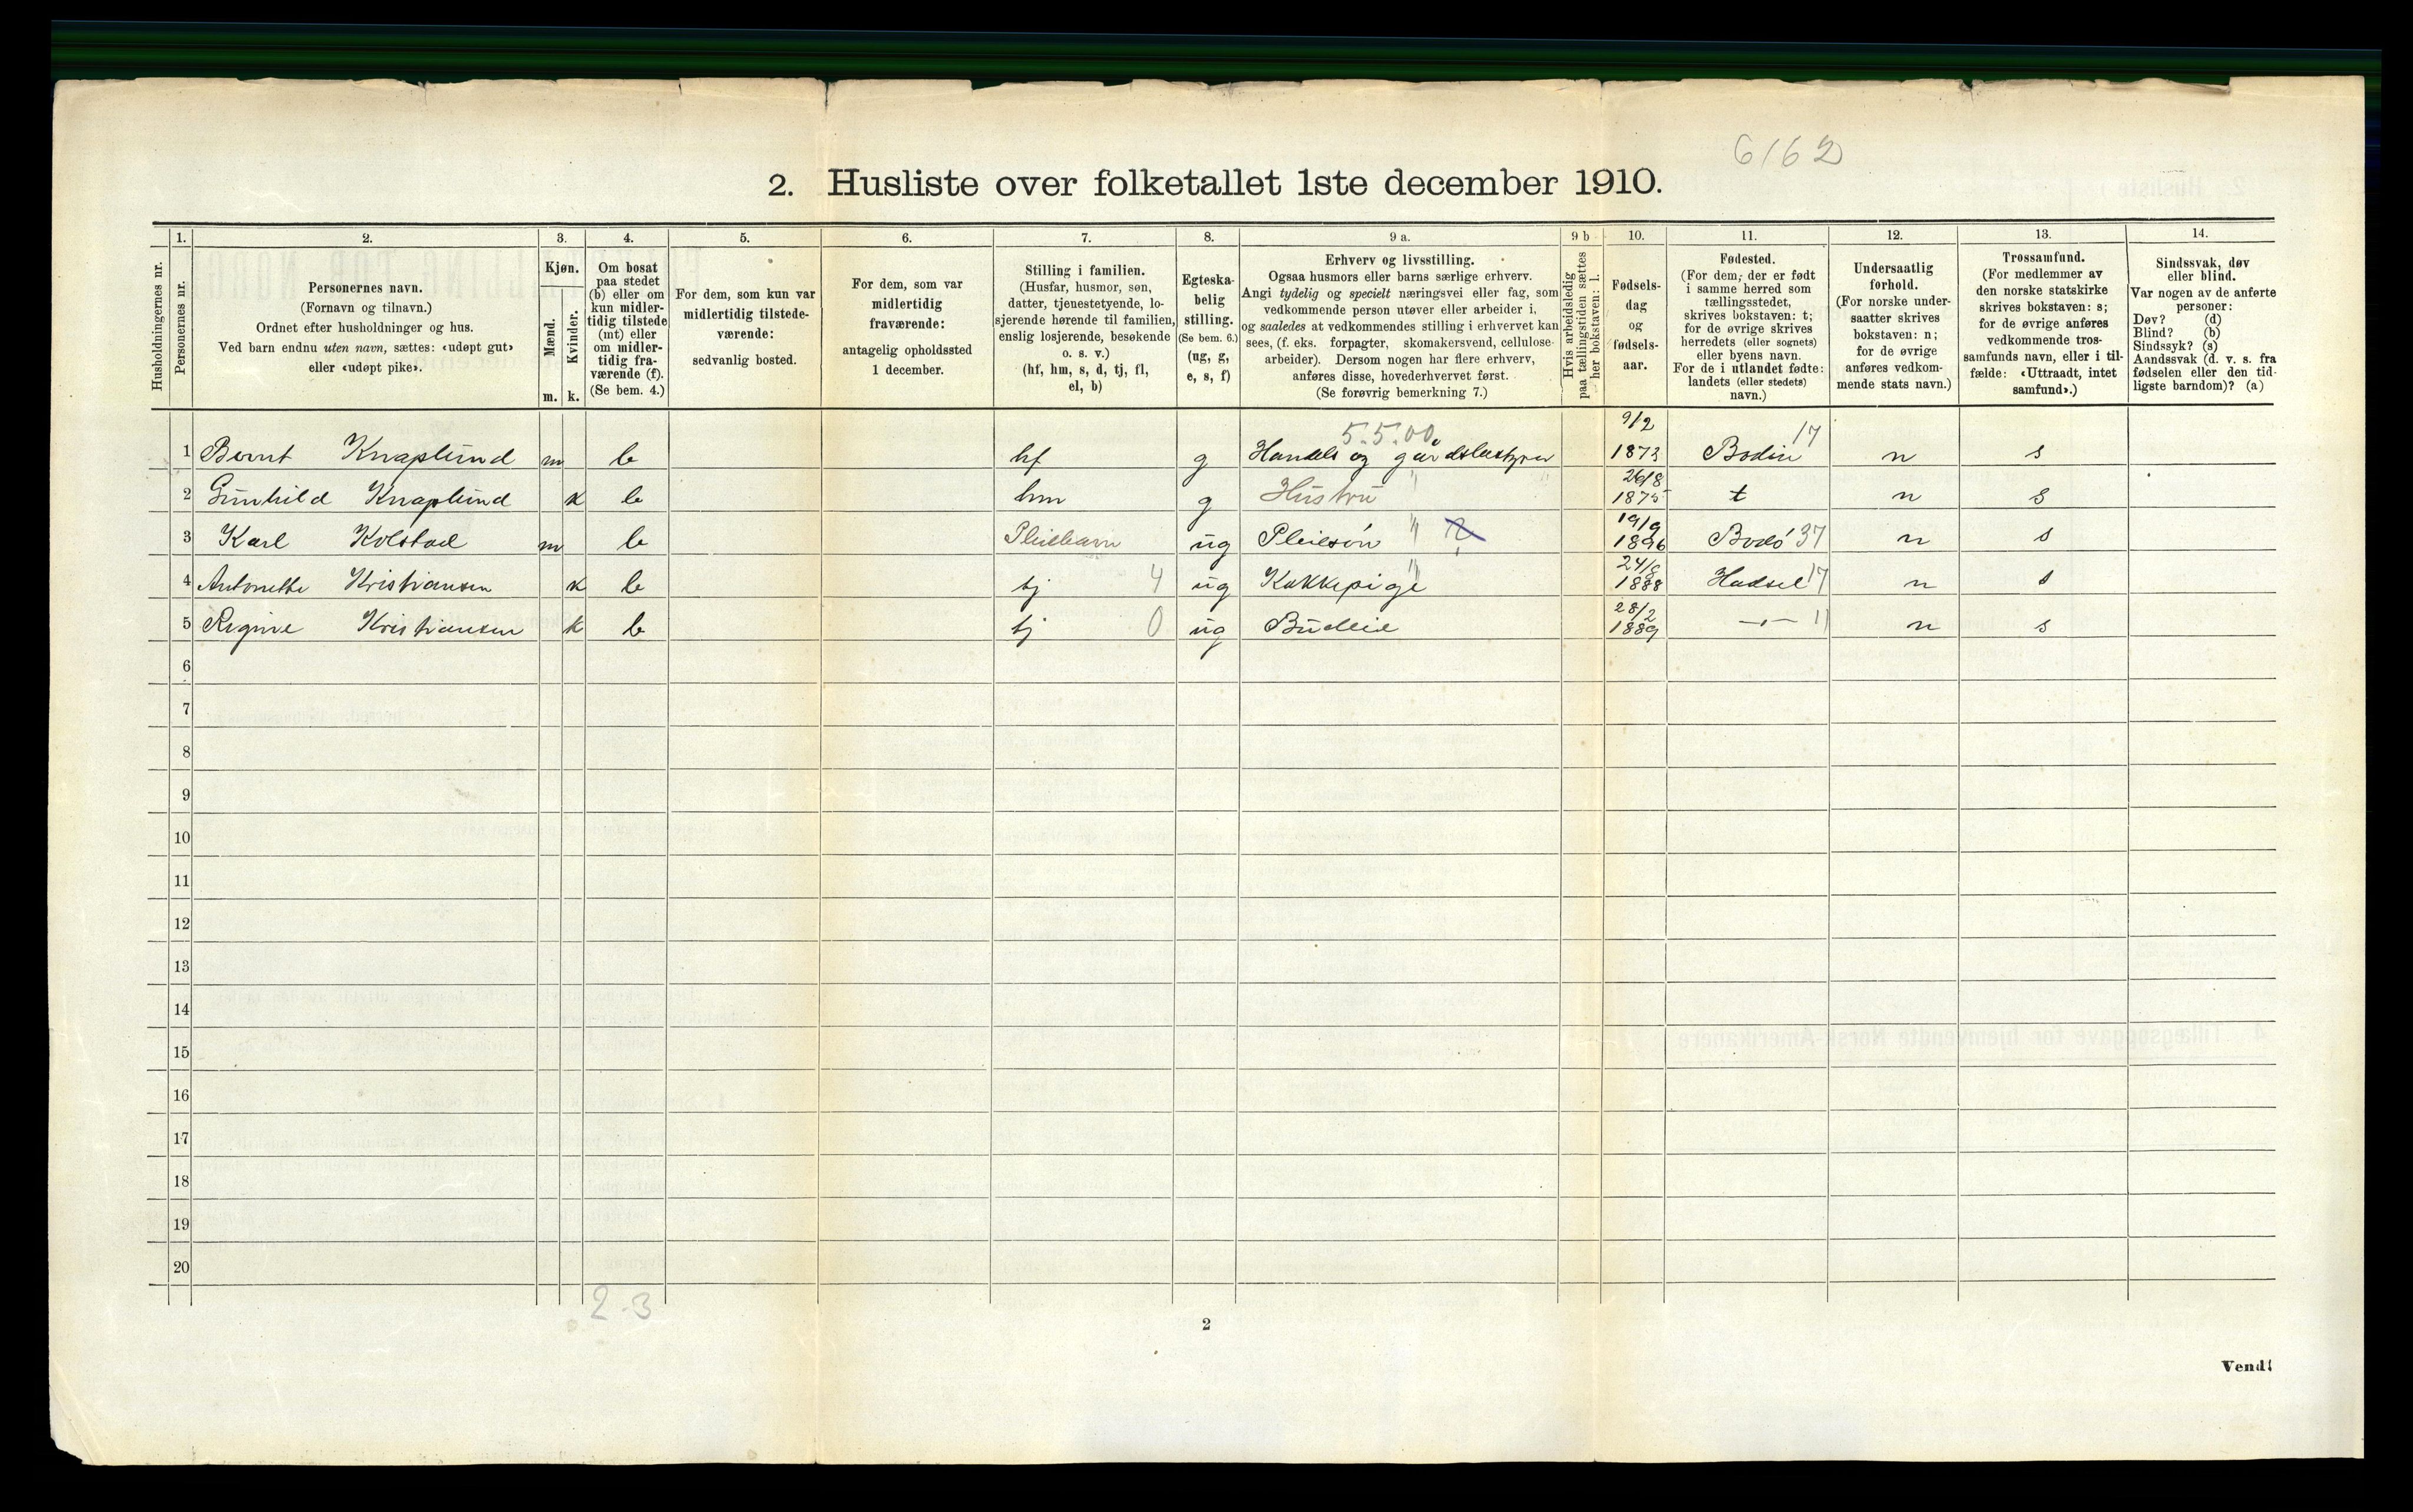 6162
2. Husliste over folketallet 1ste december 1910.
Husholdningernes nr.
1. Personernes nr.
2. Personernes navn.
(Fornavn og tilnavn.)
Ordnet efter husholdninger og hus.
Ved barn endnu uten navn, sættes: «udøpt gut»
eller «udøpt pike».
3. Kjøn.
Mænd. m.
Kvinder. k.
4. Om bosat
paa stedet
(b) eller om
kun midler-
tidig tilstede
(mt) eller
om midler-
tidig fra-
værende (f).
(Se bem. 4.)
5. For dem, som kun var
midlertidig tilstede-
værende:
sedvanlig bosted.
6. For dem, som var
midlertidig
fraværende:
antagelig opholdssted
1 december.
7. Stilling i familien.
(Husfar, husmor, søn,
datter, tjenestetyende, lo-
sjerende hørende til familien,
enslig losjerende, besøkende
o. s. v.)
(hf, hm, s, d, tj, fl,
el, b)
8. Egteska-
belig
stilling.
(Se bem. 6.)
(ug, g,
e, s, f)
9 a. Erhverv og livsstilling.
Ogsaa husmors eller barns særlige erhverv.
Angi tydelig og specielt næringsvei eller fag, som
vedkommende person utøver eller arbeider i,
og saaledes at vedkommendes stilling i erhvervet kan
sees, (f. eks. forpagter, skomakersvend, cellulose-
arbeider). Dersom nogen har flere erhverv,
anføres disse, hovederhvervet først.
(Se forøvrig bemerkning 7.)
9 b Hvis arbeidsledig
paa tællingstiden sættes
her bokstaven: l.
10. Fødsels-
dag
og
fødsels-
aar.
11. Fødested.
(For dem, der er født
i samme herred som
tællingsstedet,
skrives bokstaven: t;
for de øvrige skrives
herredets (eller sognets)
eller byens navn.
For de i utlandet fødte:
landets (eller stedets)
navn.)
12. Undersaatlig
forhold.
(For norske under-
saatter skrives
bokstaven: n;
for de øvrige
anføres vedkom-
mende stats navn.)
13. Trossamfund.
(For medlemmer av
den norske statskirke
skrives bokstaven: s;
for de øvrige anføres
vedkommende tros-
samfunds navn, eller i til-
fælde: «Uttraadt, intet
samfund».)
14. Sindssvak, døv
eller blind.
Var nogen av de anførte
personer:
Døv? (d)
Blind? (b)
Sindssyk? (s)
Aandssvak (d. v. s. fra
fødselen eller den tid-
ligste barndom)? (a)
5.5.00 9/2 17
1 Bernt Knaplund m b hf g Handels og gårdsbestyrer 1873 Bodin n s
26/8
2 Gunhild Knaplund k b hm g Hustru " 1875 t n s
19/9
3 Karl Kolstad m b Pleiebarn ug Pleiesön " 1896 Bodö 37 n s
24/8
4 Antonette Kristiansen k b tj 4 ug Kokkepige " 1888 Hadsel 17 n s
28/2
5 Regine Kristiansen k b tj 0 ug Budeie 1889 —"— 11 n s
6
7
8
9
10
11
12
13
14
15
16
17
18
19
20
2-3
2
Vend!